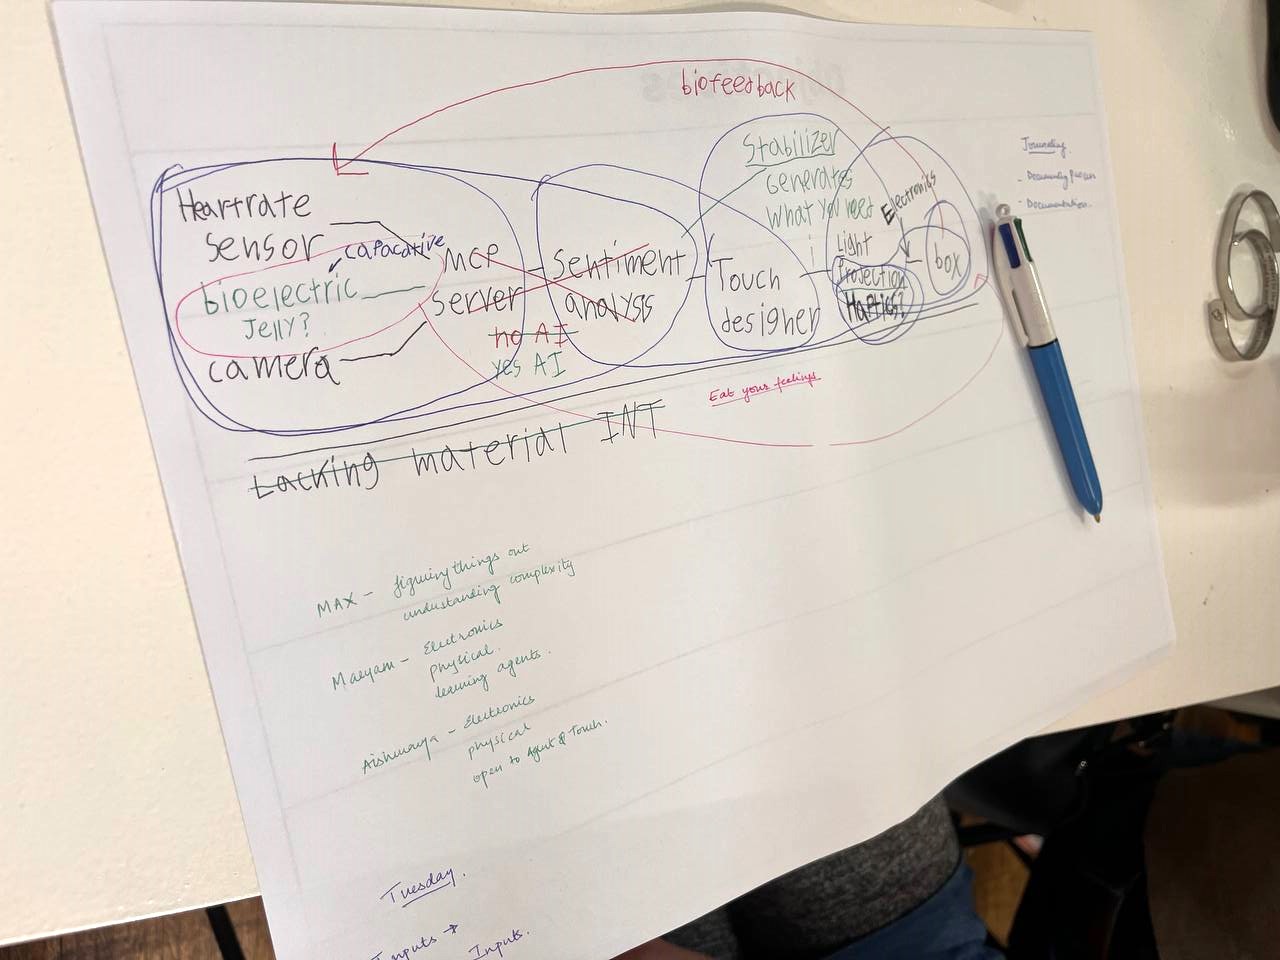 biofeedback
Stabilizer
Generates
what you need
Electronics
Journaling
- Documentation.
Heartrate
sensor
capacative
bioelectric
Jelly?
camera
MCP
server
no AI
yes AI
sentiment
analysis
Touch
designer
Light
Projection
Haptics?
box
Eat your feelings
Lacking material INT
MAX - figuring things out
understanding complexity
Maryam - Electronics
physical.
learning agents.
Aishwarya - Electronics
physical
open to Agent & Touch.
Tuesday.
Inputs →
Inputs.